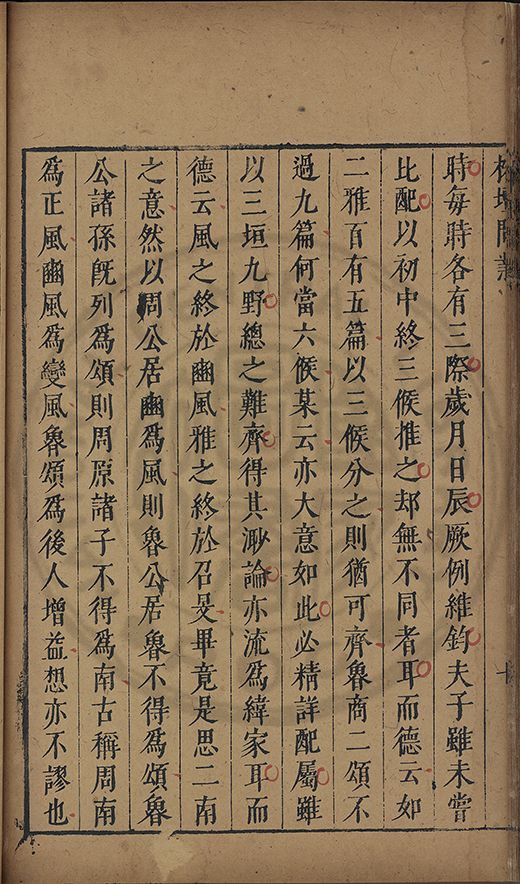 榕壇問業
十
時每時各有三際歲月日辰厥例維鈞夫子雖未嘗
比配以初中終三候推之却無不同者耳而德云如
二雅百有五篇以三候分之則猶可齊魯商二頌不
過九篇何當六候某云亦大意如此必精詳配屬雖
以三垣九野總之難齊得其渺論亦流爲緯家耳而
德云風之終於豳風雅之終於召旻畢竟是思二南
之意然以周公居豳爲風則魯公居魯不得爲頌魯
公諸孫旣列爲頌則周原諸子不得爲南古稱周南
爲正風豳風爲變風魯頌爲後人增益想亦不謬也